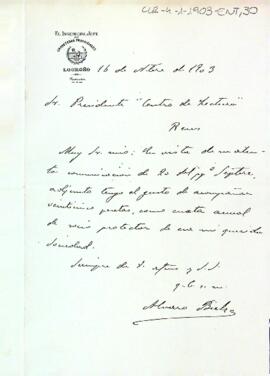 CLR-4-1-1903-ENT,30
EL INGENIERO JEFE
LOGROÑO
16 de Obre de 1903
Sr. Presidente "Centro de Lectura"
Reus
Muy Sr. mio: En vista de su aten-
ta comunicación de 20 del Septbre,
adjunto tengo el gusto de acompañar
veinticinco pesetas, como cuota anual
de socio protector de esa mi querida
Sociedad.
Siempre de V. afmo y S.S.
q. b. s. m.
Alvaro